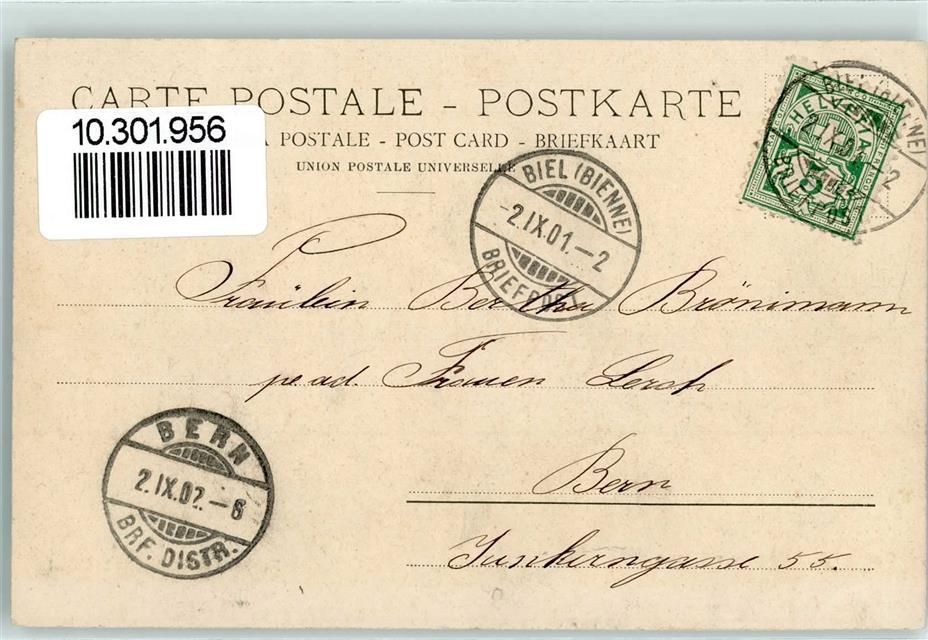 CARTE POSTALE - POSTKARTE
10.301.956
A POSTALE - POST CARD - BRIEFKAART
UNION POSTALE UNIVERSELLE
BIEL (BIENNE)
2.IX.01.-2
BRIEFEXP.
HELVETIA
5
BIEL (BIENNE)
2.IX.01.-2
Fräulein Bertha Brönimann
pe ad. Frauen Lersh
Bern
Junkerngasse 55.
BERN
2.IX.02.-6
BRF. DISTR.